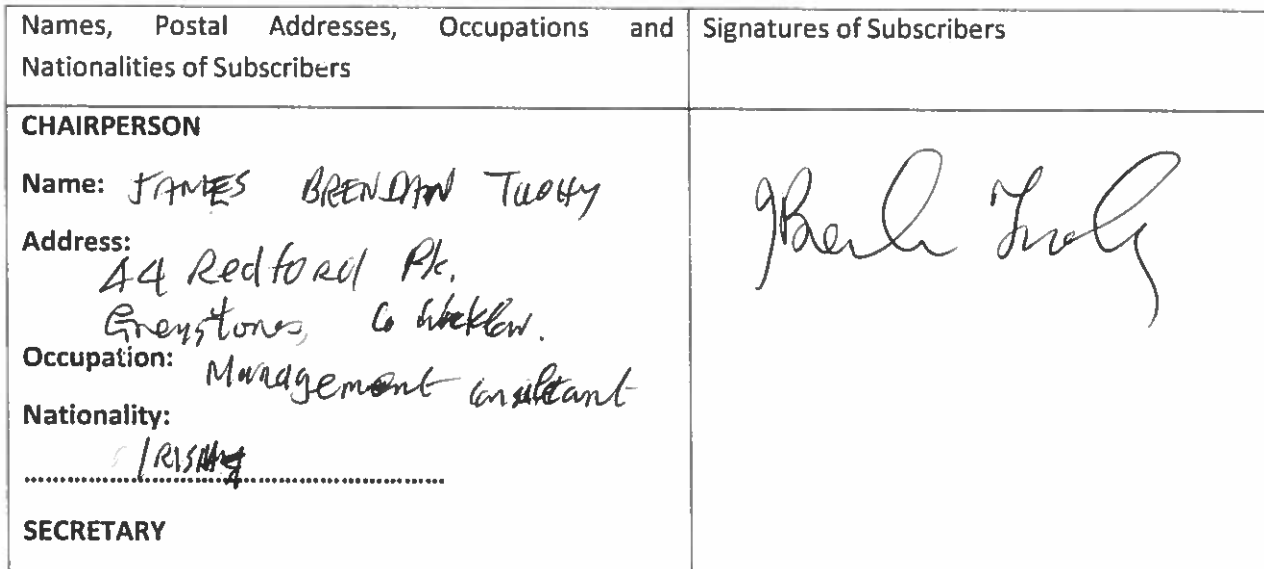 Names, Postal Addresses, Occupations and
Nationalities of Subscribers
Signatures of Subscribers
CHAIRPERSON
Name: JAMES BRENDAN TUOHY
Address:
44 Redford Pk.
Greystones, Co Wicklow.
Occupation: Management consultant
Nationality:
IRISH
SECRETARY